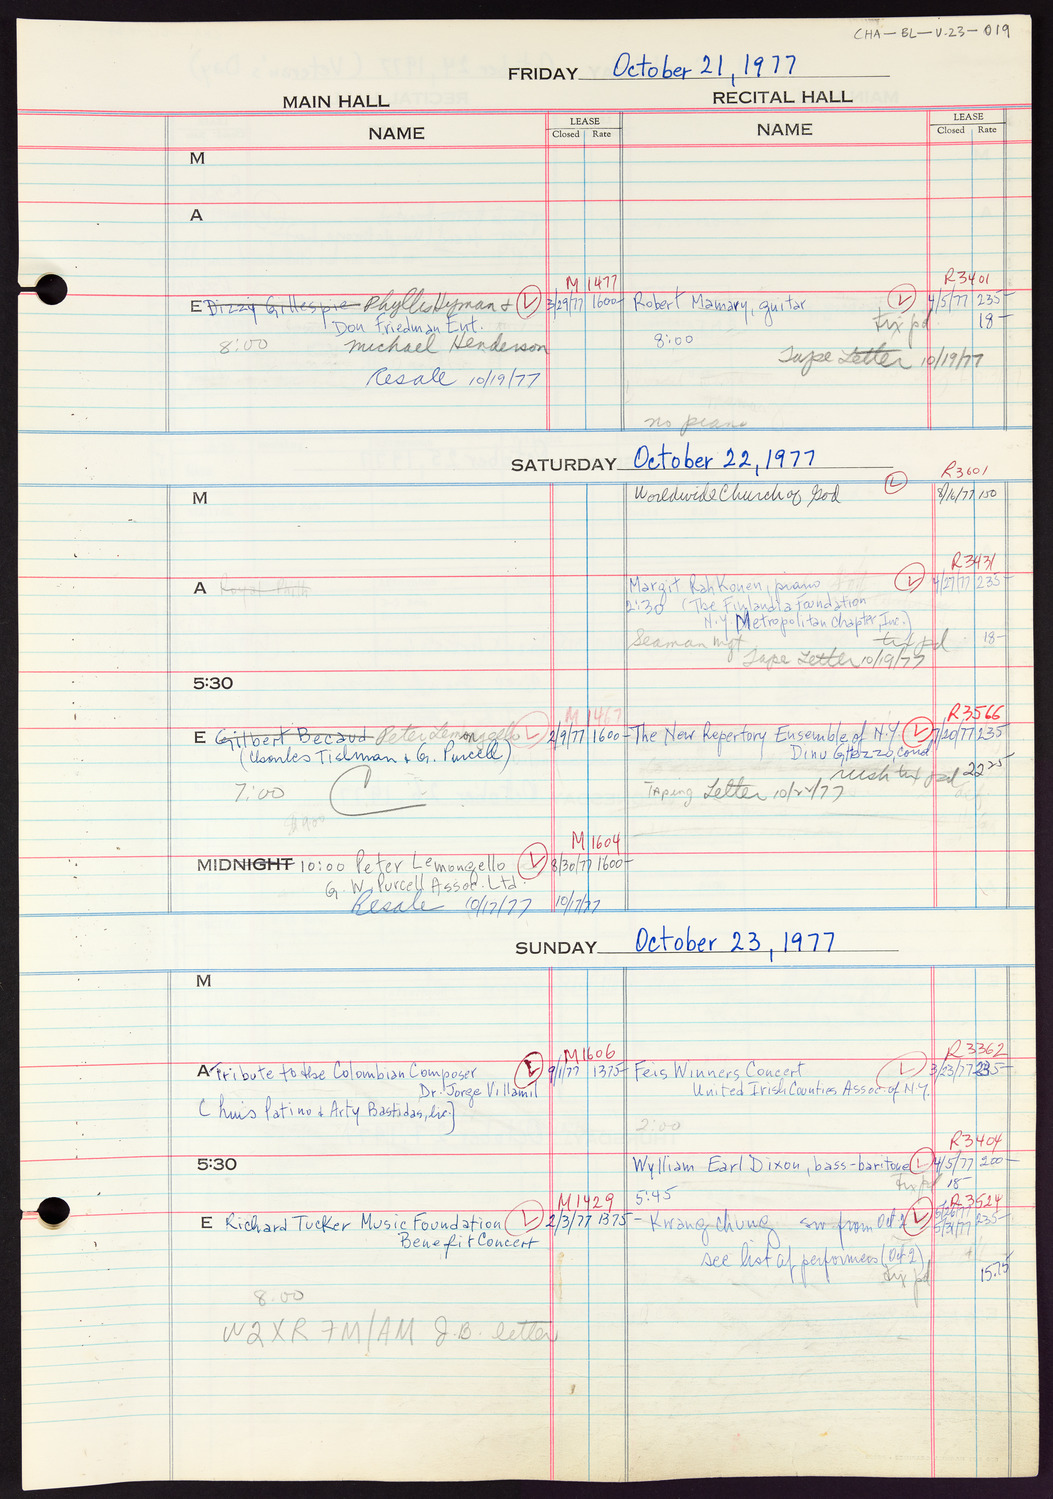 CHA-BL-V.23-019
FRIDAY October 21, 1977
MAIN HALL
RECITAL HALL
NAME
LEASE
Closed Rate
NAME
LEASE
Closed Rate
M
A
M 1477
R3401
E Dizzy Gillespie Phyllis Hyman & L 3/29/77 1600-
Don Friedman Ent.
8:00 Michael Henderson
Resale 10/19/77
Robert Mamary, guitar L 4/5/77 235-
tix pd 18-
8:00
Tape Letter 10/19/77
no piano
SATURDAY October 22, 1977
R3601
M
Worldwide Church of God L 8/16/77 150
R3431
A Royal
Margit Rahkonen, piano L 4/27/77 235-
2:30 (The Finlandia Foundation
N.Y. Metropolitan Chapter, Inc.)
Seaman mgt tix pd 18-
Tape Letter 10/19/77
5:30
M 1467
R3566
E Gilbert Becaud Peter Lemongello L 2/9/77 1600-
(Charles Tisman & G. Purcell)
7:00 C
The New Repertory Ensemble of N.Y. L 7/20/77 235
Dinu Ghezzo, cond
rush tix pd 22 25
Taping Letter 10/22/77
M 1604
MIDNIGHT 10:00 Peter Lemongello L 8/30/77 1600-
G. W. Purcell Assoc. Ltd.
Resale 10/17/77 10/17/77
SUNDAY October 23, 1977
M
M1606
R3362
A Tribute to the Colombian Composer L 9/1/77 1375-
Dr. Jorge Villamil
(Chris Patino & Arty Bastidas, Inc.)
Feis Winners Concert L 3/23/77 235-
United Irish Counties Assoc. of N.Y.
2:00
R3404
5:30
Wylliam Earl Dixon, bass-baritone L 4/5/77 200-
tix pd 18-
5:45
M1429
R3524
E Richard Tucker Music Foundation L 2/3/77 1375-
Benefit Concert
8:00
WQXR FM/AM J.B. letter
Kwang chung sw from Oct 2 L 5/26/77 235-
5/31/77
see list of performers (Oct 2)
tix pd 15.75